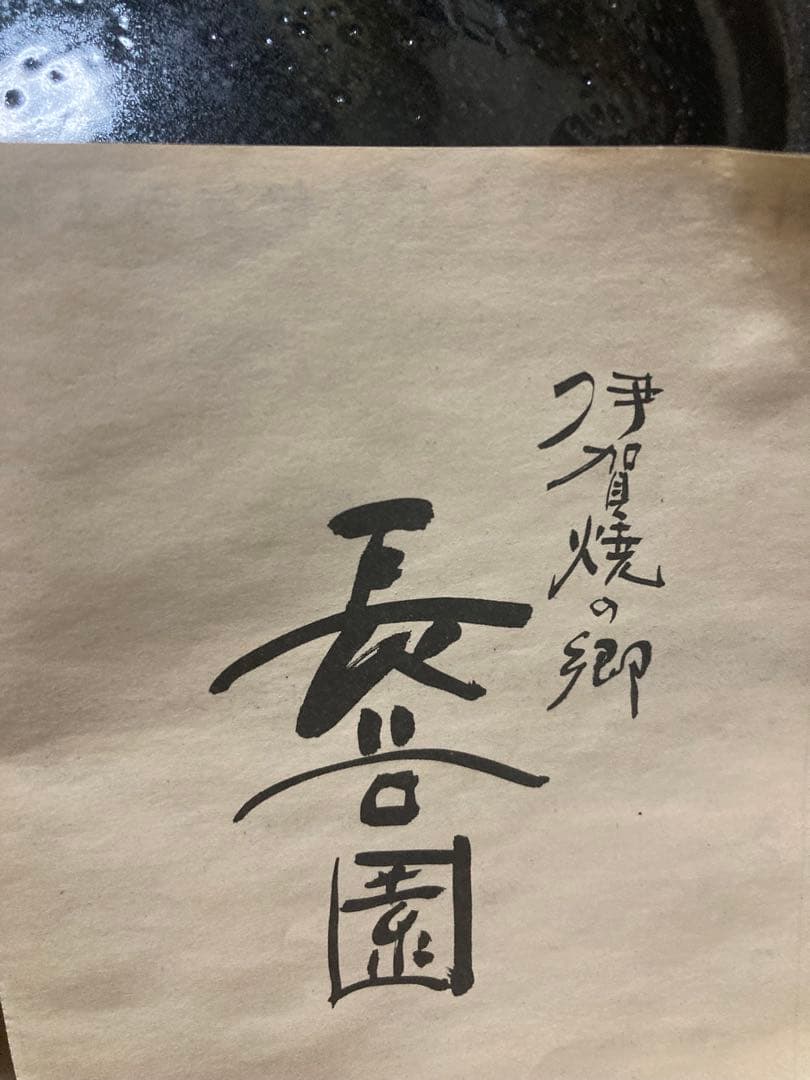 伊賀焼の郷
長谷園